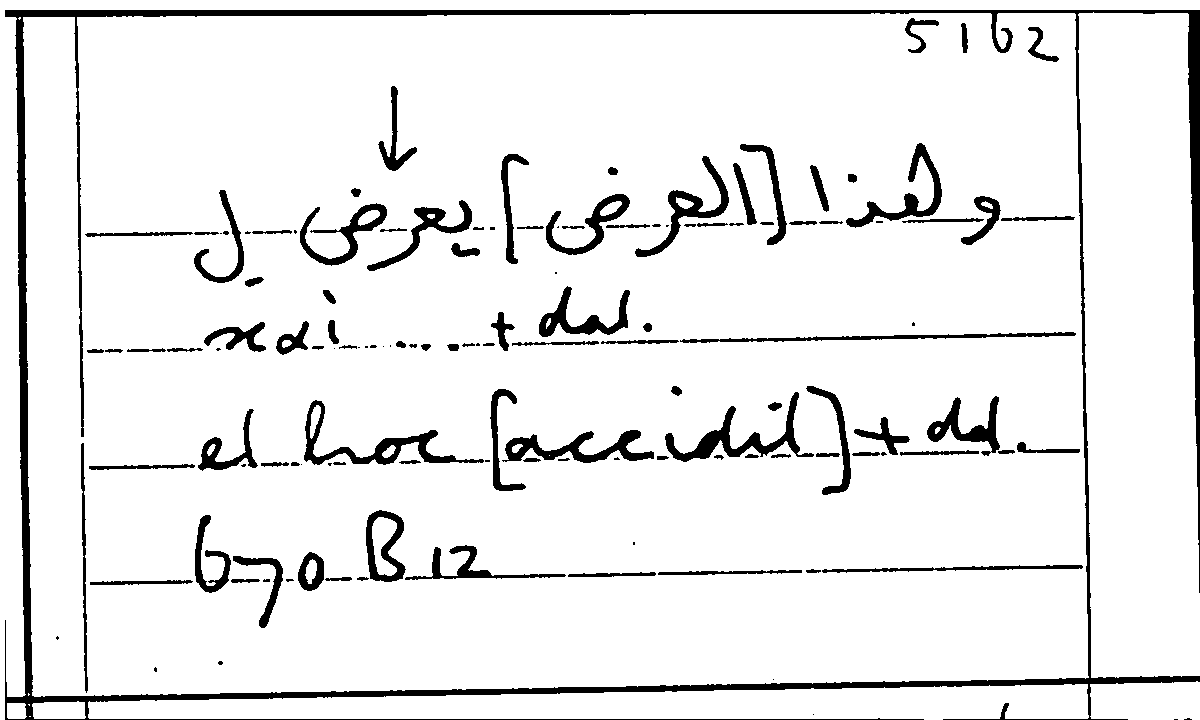 5162
↓
وهذا [العرض] يعرض لـ
και ... + dat.
et hoc [accidit] + dat.
670 B 12